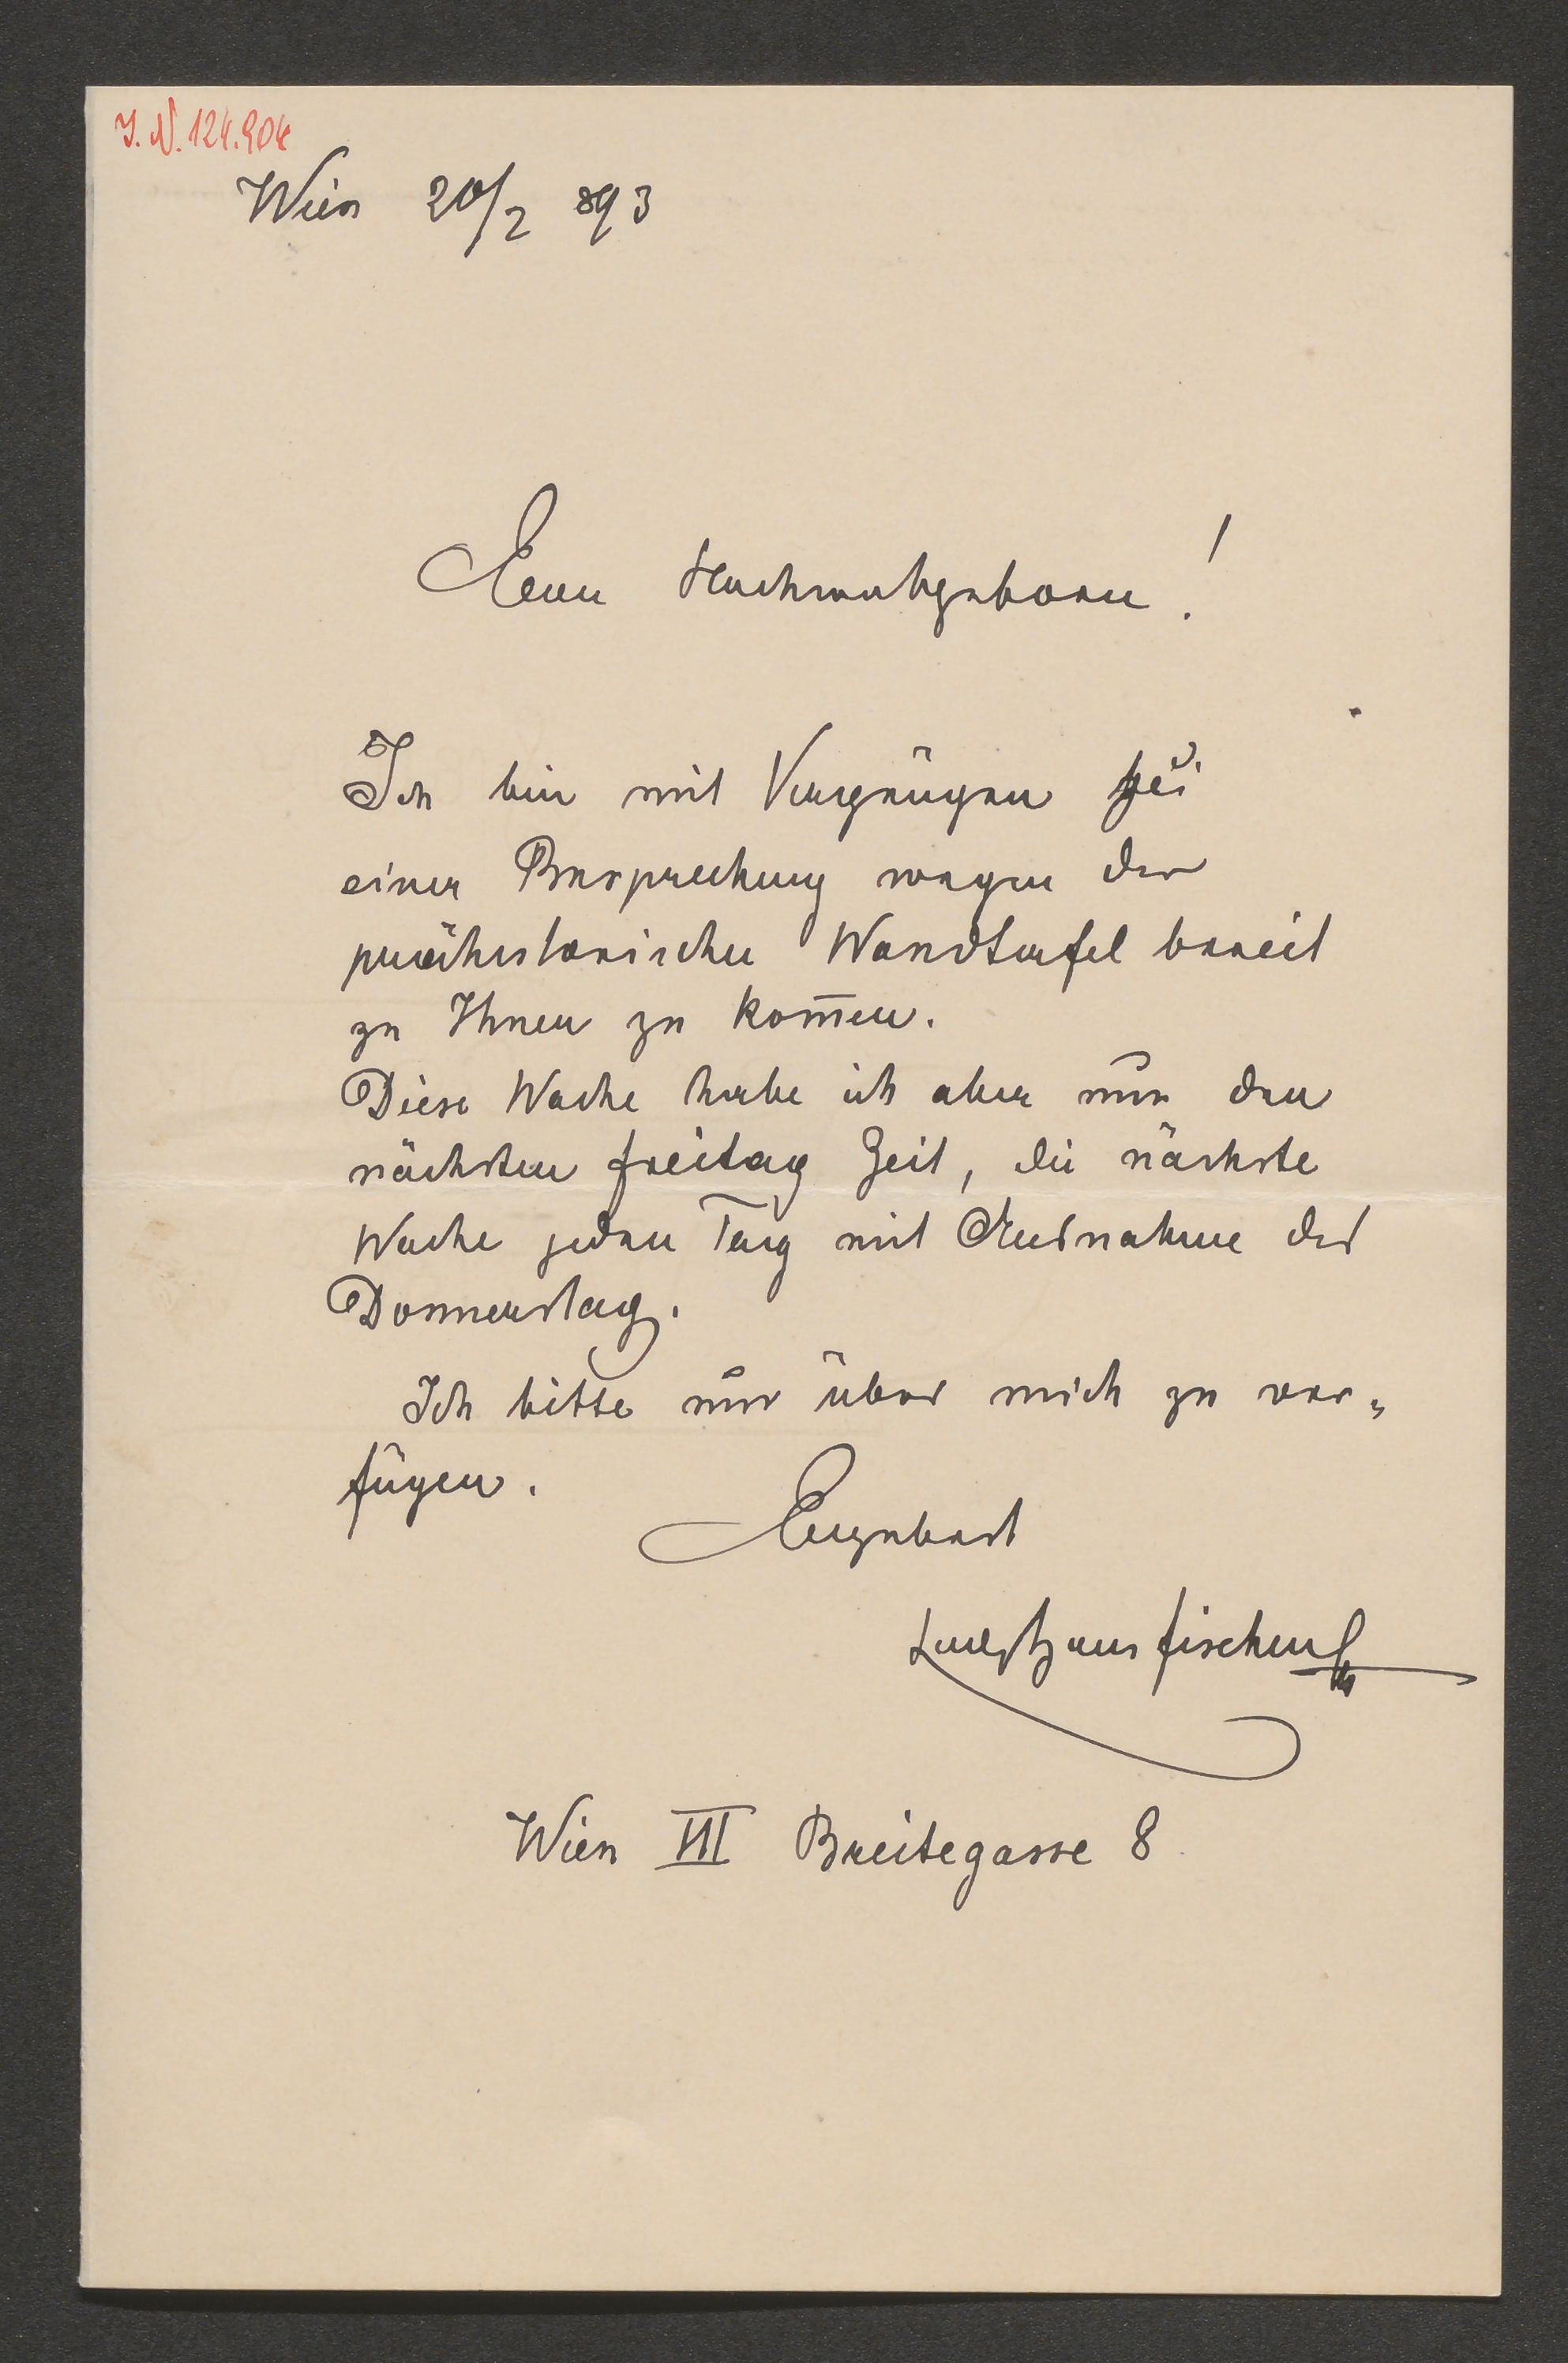 I. N. 124.904
Wien 20/2 893
Euer Hochwohlgeboren!
Ich bin mit Vergnügen zu
einer Besprechung wegen der
prähistorischen Wandtafel bereit
zu Ihnen zu kom̅en.
Diese Woche habe ich aber nur den
nächsten Freitag Zeit, die nächste
Woche jeden Tag mit Ausnahme des
Donnerstag.
Ich bitte nur über mich zu ver=
fügen.
Ergebenst
Ludw Hans Fischer
Wien VII Breitegasse 8